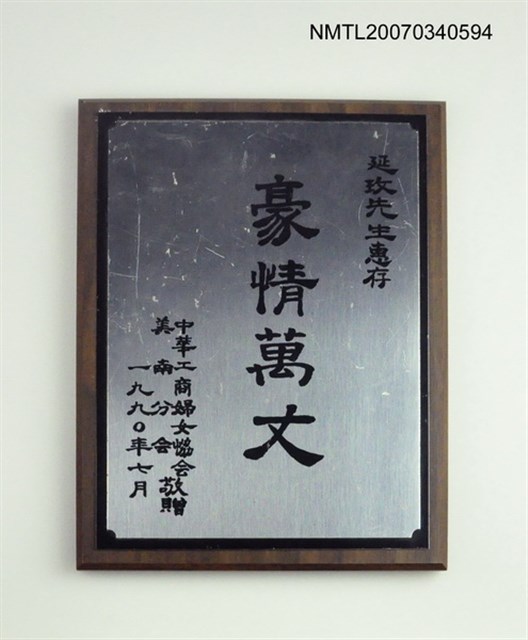 NMTL20070340594
延玫先生惠存
豪情萬丈
中華工商婦女協會
美南分會 敬贈
一九九〇年七月